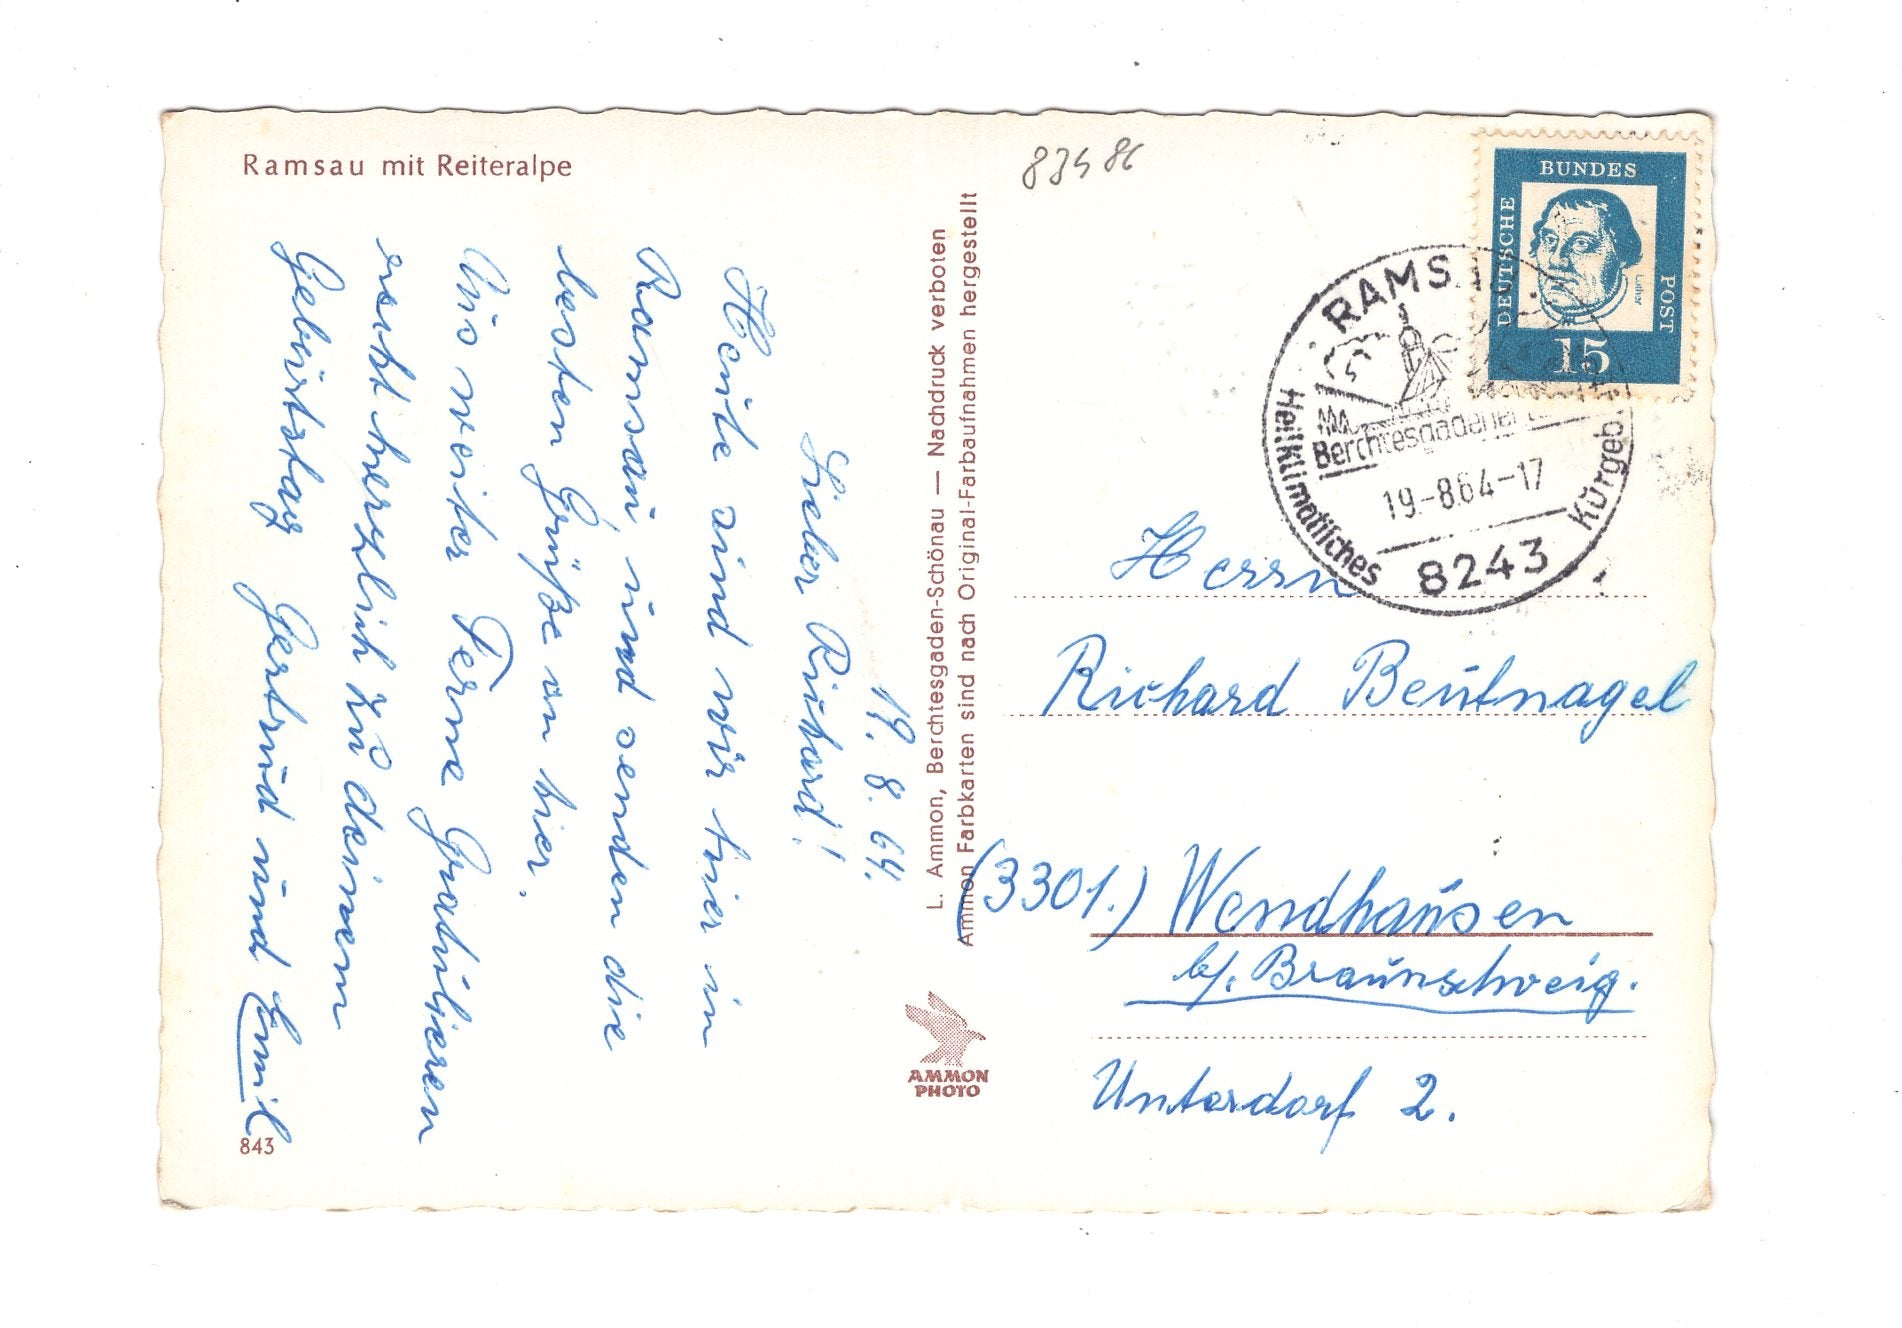 Ramsau mit Reiteralpe
19. 8. 64.
Lieber Richard!
Heute sind wir hier in
Ramsau, und senden die
besten Grüße von hier.
Aus weiter Ferne Gradulieren
recht herzlich zu deinem
Geburtstag Gertrud und Emil
843
L. Ammon, Berchtesgaden-Schönau — Nachdruck verboten
Ammon Farbkarten sind nach Original-Farbaufnahmen hergestellt
AMMON
PHOTO
83486
DEUTSCHE
BUNDES
POST
Luther
15
RAMSAU
Berchtesgadener
19.-8.64-17
Heilklimatisches
Kurgeb.
8243
Herrn
Richard Beutnagel
(3301.) Wendhausen
b/. Braunschweig.
Unterdorf 2.